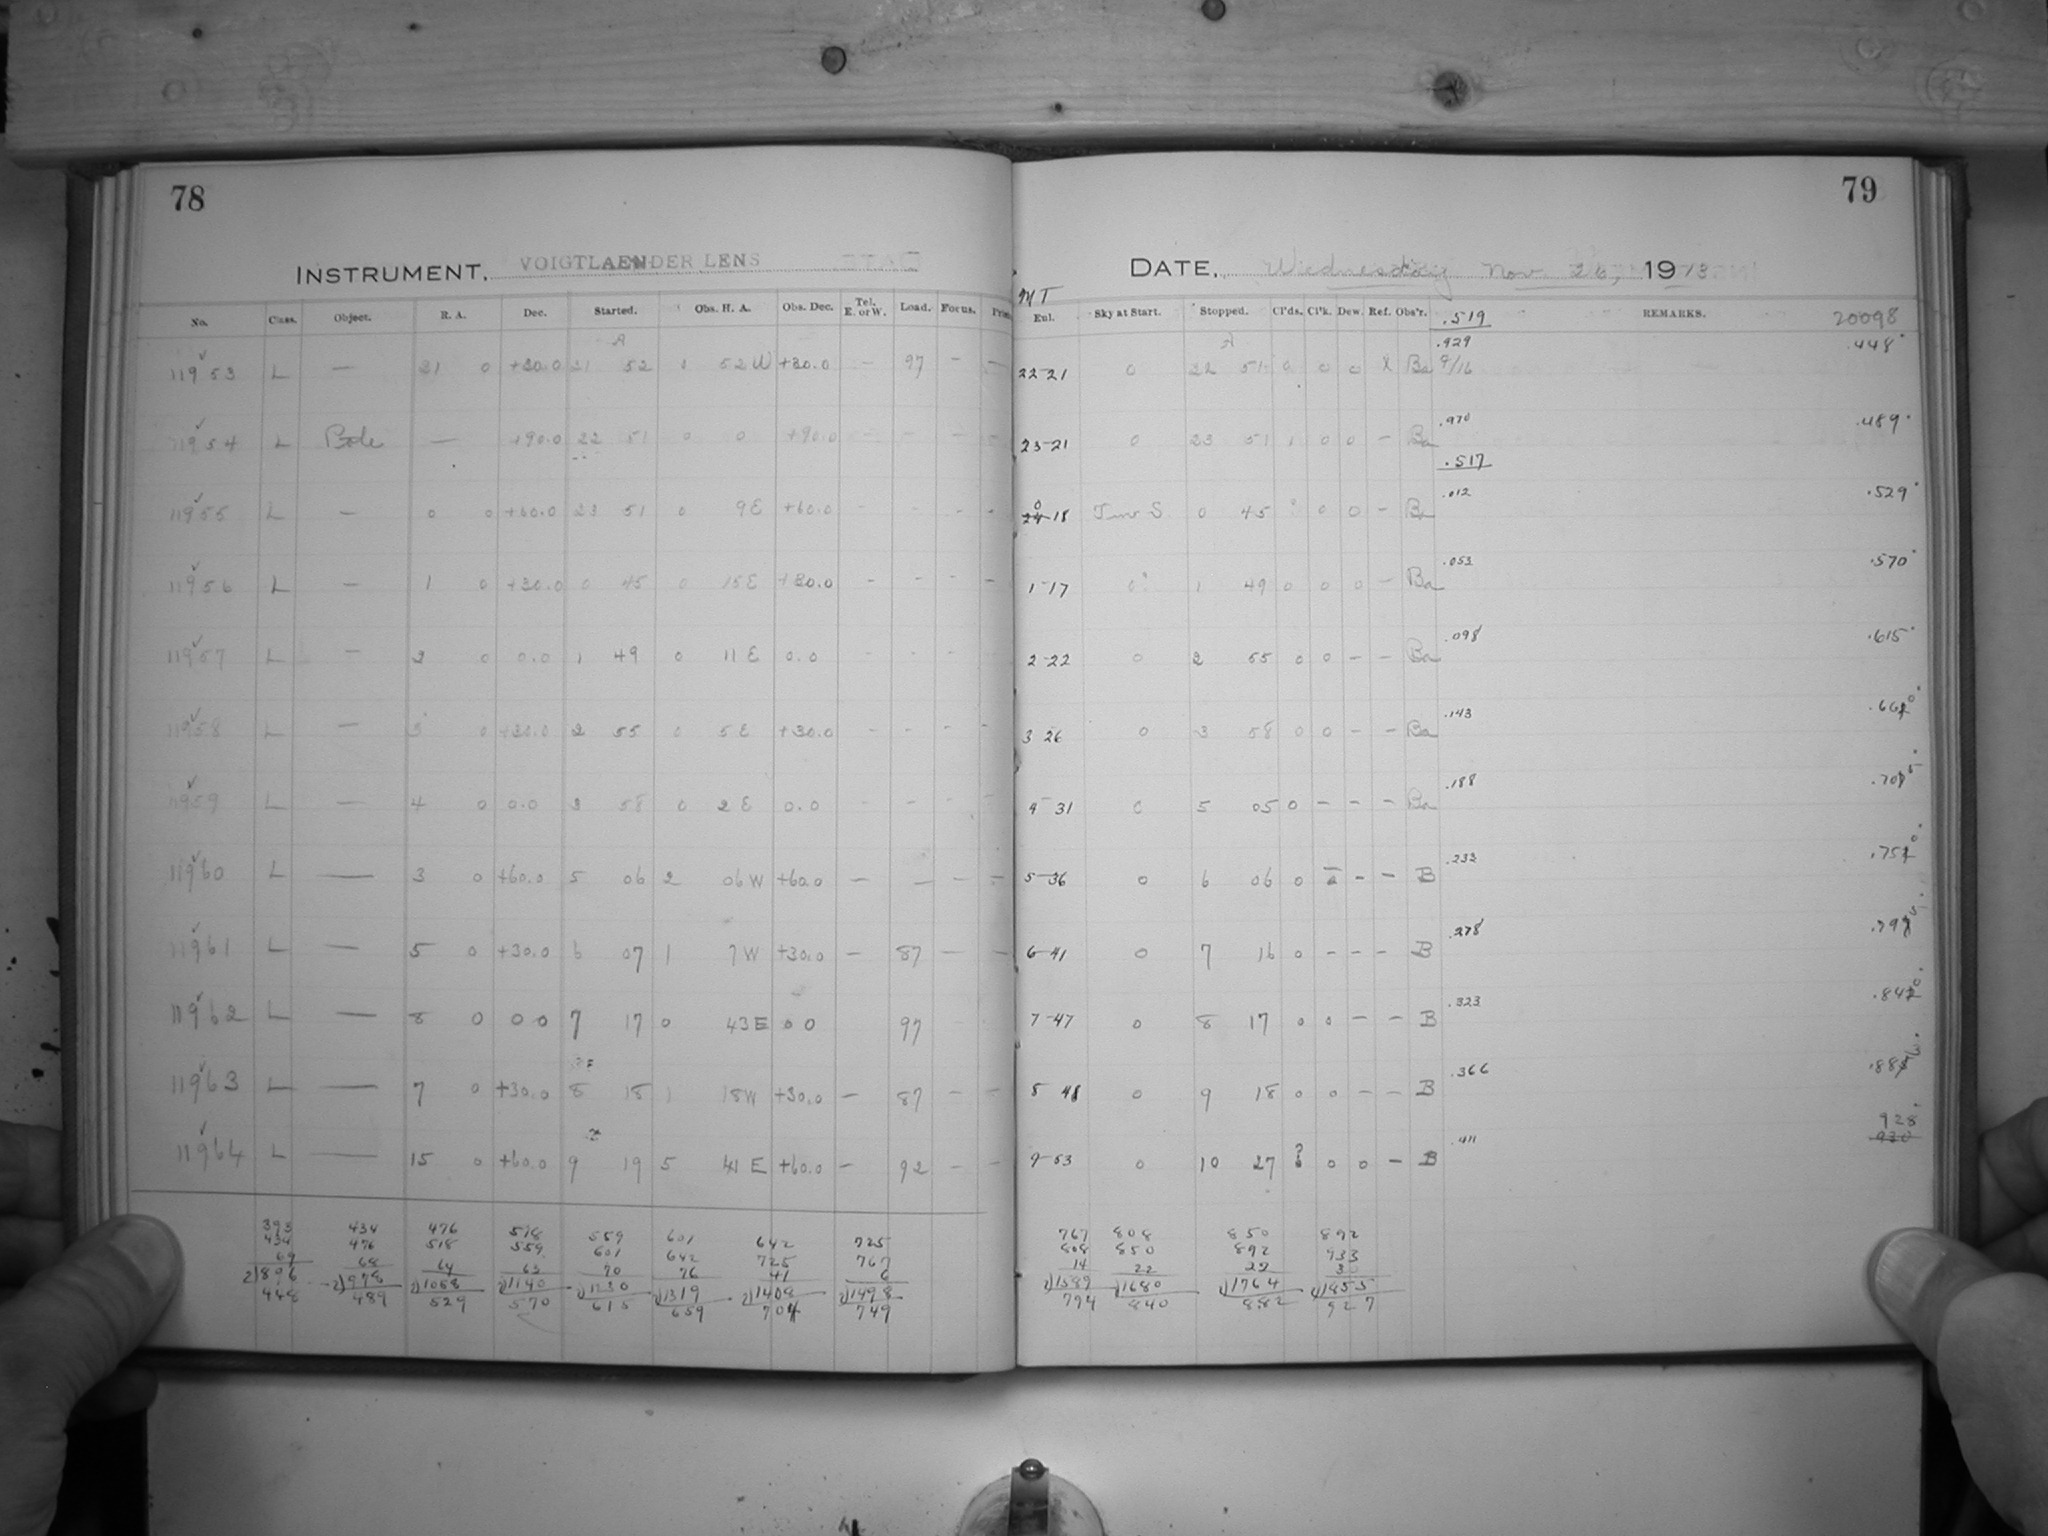 78
INSTRUMENT, VOIGTLAENDER LENS
No. Class. Object. R. A. Dec. Started. Obs. H. A. Obs. Dec. Tel. E. or W. Load. Focus.
11953 L — 21 0 +30.0 21 52 1 52 W +30.0 — 97 — —
11954 L Pole — +90.0 22 51 0 0 +90.0 — — — —
11955 L — 0 0 +60.0 23 51 0 9 E +60.0 - - - -
11956 L — 1 0 +30.0 0 45 0 15 E +30.0 - - - -
11957 L — 2 0 0.0 1 49 0 11 E 0.0 - - - -
11958 L — 3 0 +30.0 2 55 0 5 E +30.0 - - - -
11959 L — 4 0 0.0 3 58 0 2 E 0.0 - - - -
11960 L — 3 0 +60.0 5 06 2 06 W +60.0 — — — —
11961 L — 5 0 +30.0 6 07 1 7 W +30.0 — 87 — —
11962 L — 8 0 0 0 7 17 0 43 E 0 0 97
11963 L — 7 0 +30.0 8 18 1 18 W +30.0 — 87 — —
11964 L — 15 0 +60.0 9 19 5 41 E +60.0 — 92 — —
393 434 476 518 559 601 642 725
434 476 518 559 601 642 725 767
69 68 64 63 70 76 41 6
2)896 2)978 2)1058 2)1140 2)1230 2)1319 2)1408 2)1498
448 489 529 570 615 659 704 749
79
DATE, Wednesday Nov. 26, 1913
MT
Eul. Sky at Start. Stopped. Cl'ds. Cl'k. Dew. Ref. Obs'r. .519 REMARKS. 20098
.929 .448
22-21 0 22 51 0 0 0 Ba 9/16
.970 .489
23-21 0 23 51 1 0 0 - Ba
.517
.012 .529
0
24-18 0 45 ? 0 0 - Ba
.053 .570
1-17 0? 1 49 0 0 0 - Ba
.098 .615
2-22 0 2 55 0 0 - - Ba
.143
3 26 0 3 58 0 0 - - Ba
.188
4-31 0 5 05 0 - - - Ba
.233
5-36 0 6 06 0 - - - B
.278
6-41 0 7 16 0 - - - B
.323
7-47 0 8 17 0 0 - - B
.366
8 48 0 9 18 0 0 - - B
.411 928
930
9-53 0 10 27 ? 0 0 - B
767 808 850 892
808 850 892 933
14 22 22 30
2)1589 2)1680 2)1764 2)1855
794 840 882 927